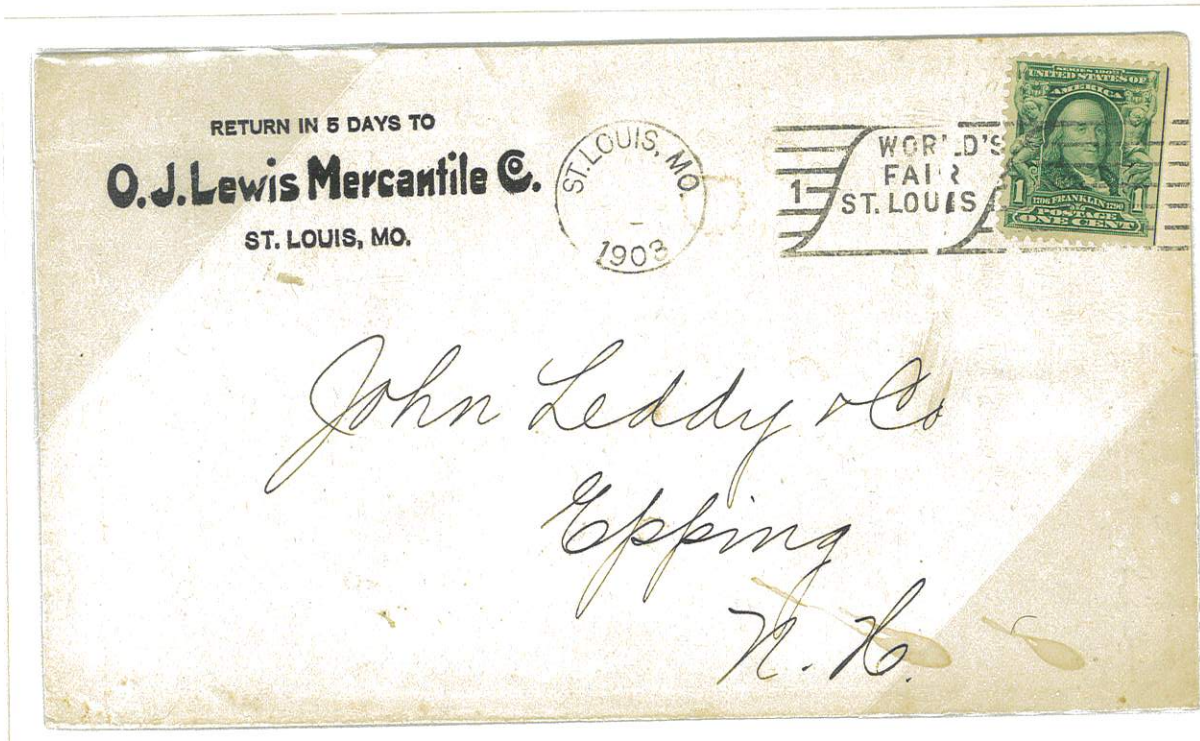 RETURN IN 5 DAYS TO
O. J. Lewis Mercantile Co.
ST. LOUIS, MO.
ST. LOUIS, MO.
1903
1
WORLD'S
FAIR
ST. LOUIS
SERIES 1902
UNITED STATES OF
AMERICA
1706 FRANKLIN 1790
1 1
POSTAGE
ONE CENT
John Leddy & Co
Epping
N. H.